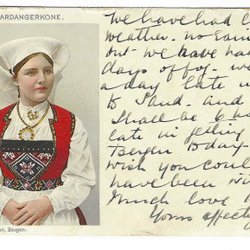 ARDANGERKONE.
We have had
weather. no Rain
but we have had
days of fog. we
a day late
to Sund. and
Shall be 6 h
late in getting
Bergen today.
wish you could
have been
Much love
Yours affect
n, Bergen.